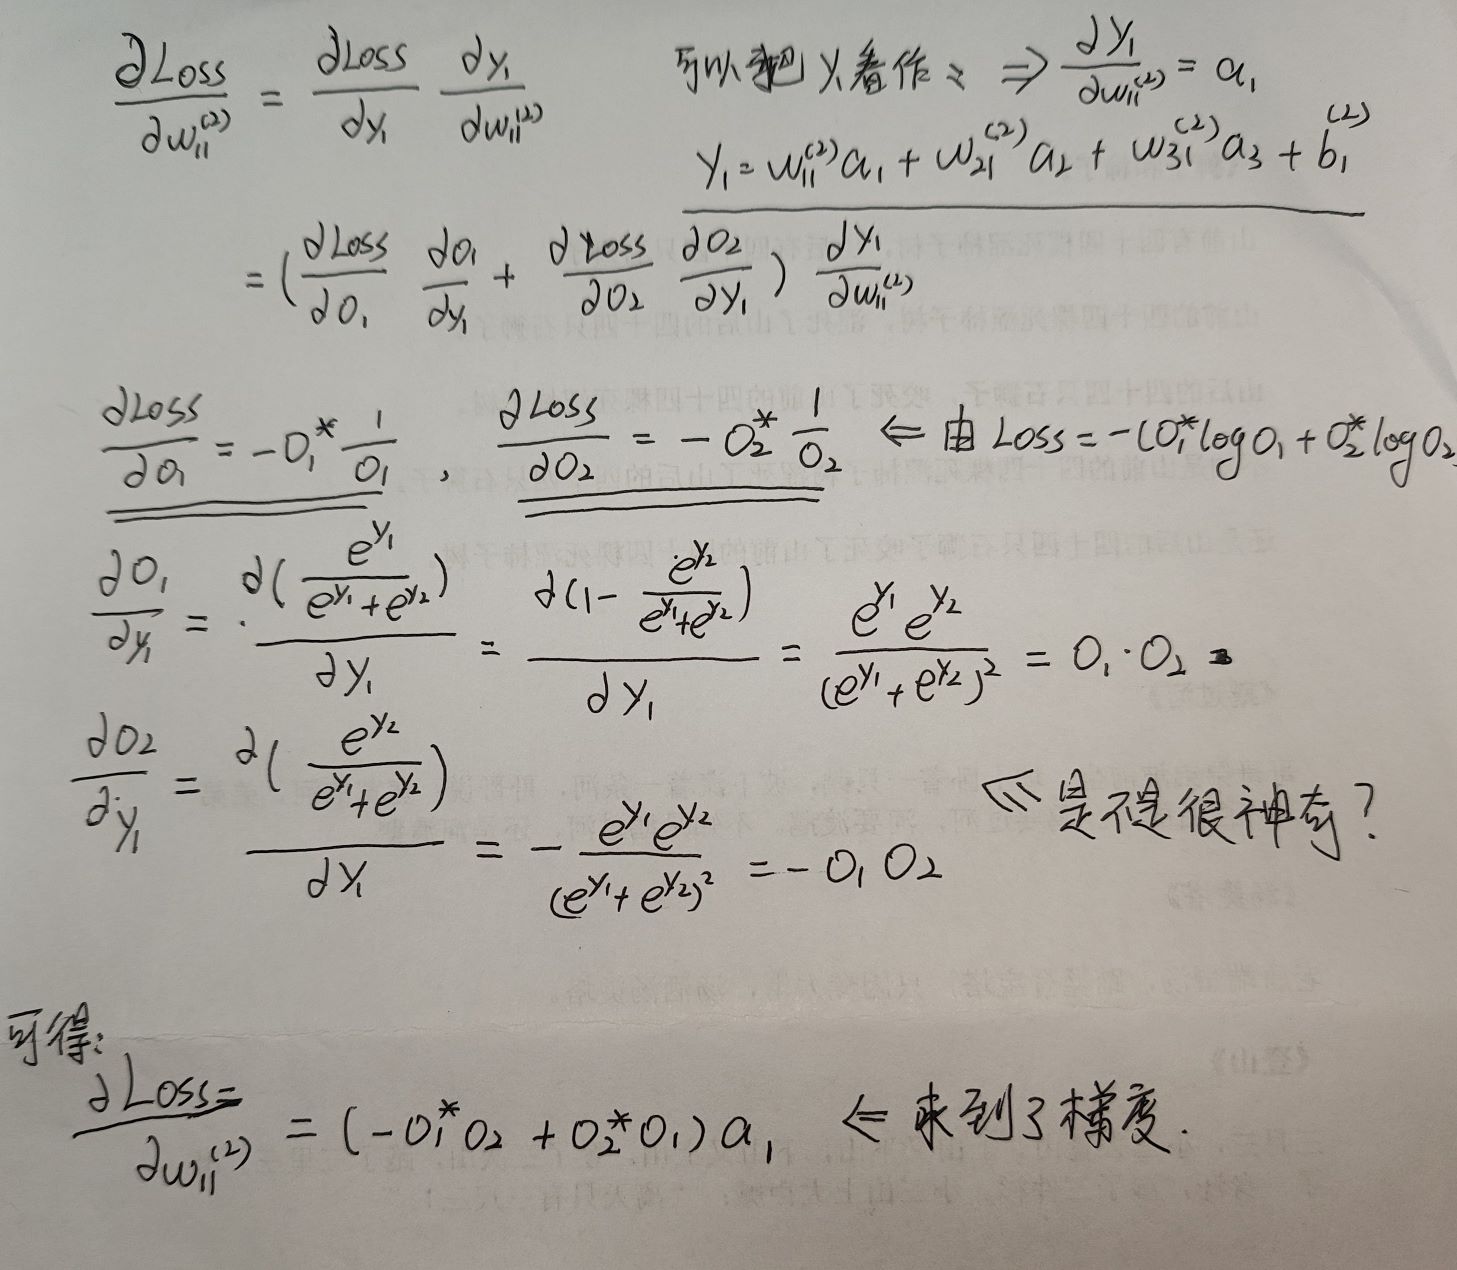 ∂Loss/∂w₁₁⁽²⁾ = ∂Loss/∂y₁ ∂y₁/∂w₁₁⁽²⁾ 可以把y₁看作z ⇒ ∂y₁/∂w₁₁⁽²⁾ = a₁
y₁ = w₁₁⁽²⁾a₁ + w₂₁⁽²⁾a₂ + w₃₁⁽²⁾a₃ + b₁⁽²⁾
= (∂Loss/∂O₁ ∂O₁/∂y₁ + ∂Loss/∂O₂ ∂O₂/∂y₁) ∂y₁/∂w₁₁⁽²⁾
∂Loss/∂O₁ = -O₁* 1/O₁ , ∂Loss/∂O₂ = -O₂* 1/O₂ ⇐ 由 Loss = -(O₁*logO₁ + O₂*logO₂
∂O₁/∂y₁ = ∂(e^y₁/(e^y₁+e^y₂))/∂y₁ = ∂(1 - e^y₂/(e^y₁+e^y₂))/∂y₁ = e^y₁e^y₂/(e^y₁+e^y₂)² = O₁·O₂
∂O₂/∂y₁ = ∂(e^y₂/(e^y₁+e^y₂))/∂y₁ = -e^y₁e^y₂/(e^y₁+e^y₂)² = -O₁O₂
⇐ 是不是很神奇?
可得:
∂Loss/∂w₁₁⁽²⁾ = (-O₁*O₂ + O₂*O₁)a₁ ⇐ 求到了梯度.